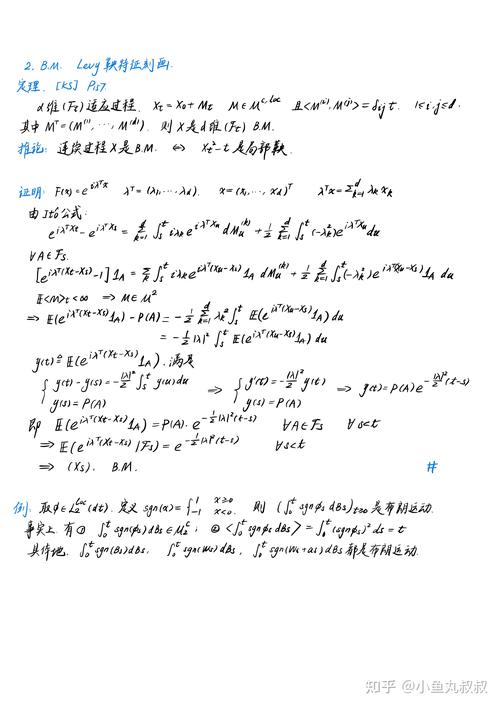 2. B.M. Levy 鞅特征刻画.
定理. [KS] P157.
d维 (Ft) 适应过程. Xt = X0 + Mt M∈M^{c,loc} 且<M^{(i)}, M^{(j)}> = δij t. 1≤i,j≤d.
其中 M^T = (M^{(1)}, ⋯, M^{(d)}). 则 X 是 d 维 (Ft) B.M.
推论: 连续过程 X 是 B.M. ⇔ Xt²-t 是局部鞅.
证明: F(x) = e^{iλ^T x} λ^T = (λ1, ⋯, λd). x = (x1, ⋯, xd)^T λ^T x = Σ_{k=1}^d λk xk
由 Itô 公式:
e^{iλ^T Xt} - e^{iλ^T Xs} = Σ_{k=1}^d ∫_s^t iλk e^{iλ^T Xu} dMu^{(k)} + 1/2 Σ_{k=1}^d ∫_s^t (-λk²) e^{iλ^T Xu} du
∀A∈Fs.
[e^{iλ^T(Xt-Xs)} - 1] 1_A = Σ_k ∫_s^t iλk e^{iλ^T(Xu-Xs)} 1_A dMu^{(k)} + 1/2 Σ_{k=1}^d ∫_s^t (-λk²) e^{iλ^T(Xu-Xs)} 1_A du
E<M>t < ∞ ⇒ M∈M²
⇒ E(e^{iλ^T(Xt-Xs)} 1_A) - P(A) = -1/2 Σ_{k=1}^d λk² ∫_s^t E(e^{iλ^T(Xu-Xs)} 1_A) du
= -1/2 |λ|² ∫_s^t E(e^{iλ^T(Xu-Xs)} 1_A) du
y(t) ≜ E(e^{iλ^T(Xt-Xs)} 1_A). 满足
{ y(t) - y(s) = -|λ|²/2 ∫_s^t y(u) du ⇒ { y'(t) = -|λ|²/2 y(t) ⇒ y(t) = P(A) e^{-|λ|²/2 (t-s)}
y(s) = P(A) y(s) = P(A)
即 E(e^{iλ^T(Xt-Xs)} 1_A) = P(A) · e^{-1/2 |λ|²(t-s)} ∀A∈Fs ∀s<t
⇒ E(e^{iλ^T(Xt-Xs)} | Fs) = e^{-1/2 |λ|²(t-s)} ∀s<t
⇒ (Xs). B.M. #
例: 取 φ∈L_2^{loc}(dt). 定义 sgn(x) = { 1 x≥0 -1 x<0. 则 (∫_0^t sgn φs dBs)_{t≥0} 是布朗运动.
事实上. 有 ① ∫_0^t sgn(φs) dBs ∈ M_2^c; ② <∫_0^t sgn φs dBs> = ∫_0^t (sgn φs)² ds = t
具体地. ∫_0^t sgn(Bs) dBs, ∫_0^t sgn(Ws) dBs, ∫_0^t sgn(Ws+as) dBs 都是布朗运动.
知乎 @小鱼丸叔叔